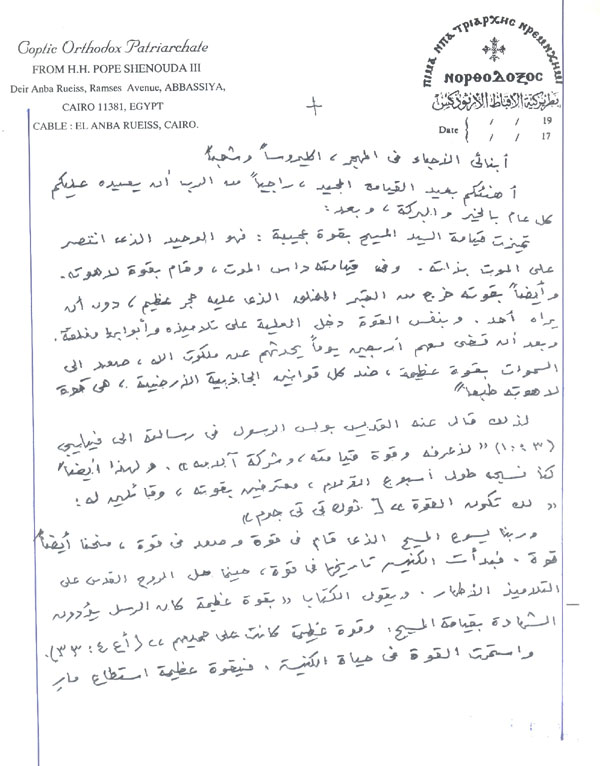 Coptic Orthodox Patriarchate
FROM H.H. POPE SHENOUDA III
Deir Anba Rueiss, Ramses Avenue, ABBASSIYA,
CAIRO 11381, EGYPT
CABLE : EL ANBA RUEISS, CAIRO.
ⲚⲞⲢⲐⲞⲆⲞⲜⲞⲤ
بطريركية الأقباط الأرثوذكس
Date / / 19
/ / 17
أبنائى الأحباء فى المهجر، اكليروساً وشعباً
أهنئكم بعيد القيامة المجيد، راجياً من الرب أن يعيده عليكم
كل عام بالخير والبركة، وبعد:
تميزت قيامة السيد المسيح بقوة عجيبة: فهو الوحيد الذى انتصر
على الموت بذاته. وفى قيامته داس الموت، وقام بقوة لاهوته.
وأيضاً بقوته خرج من القبر المغلق الذى عليه حجر عظيم، دون أن
يراه أحد. وبنفس القوة دخل العلية على تلاميذه وأبوابها مغلقة.
وبعد أن قضى معهم أربعين يوماً يحدثهم عن ملكوت الله، صعد الى
السموات بقوة عظيمة، ضد كل قوانين الجاذبية الأرضية، هى قوة
لاهوته طبعاً
لذلك قال عنه القديس بولس الرسول فى رسالته الى فيلبى
(٣: ١٠) "لأعرفه وقوة قيامته، وشركة آلامه". ولهذا أيضاً
كنا نسبحه طول أسبوع الآلام، معترفين بقوته، وقائلين له:
"لك تكون القوة" [ ثوك تى تى جوم ]
وربنا يسوع المسيح الذى قام فى قوة وصعد فى قوة، منحنا أيضاً
قوة. فبدأت الكنيسة تاريخها فى قوة، حينما حل الروح القدس على
التلاميذ الأطهار. ويقول الكتاب "بقوة عظيمة كان الرسل يؤدون
الشهادة بقيامة المسيح، وقوة عظيمة كانت على جميعهم" (أع ٤: ٣٣).
واستمرت القوة فى حياة الكنيسة. فبقوة عظيمة استطاع مار